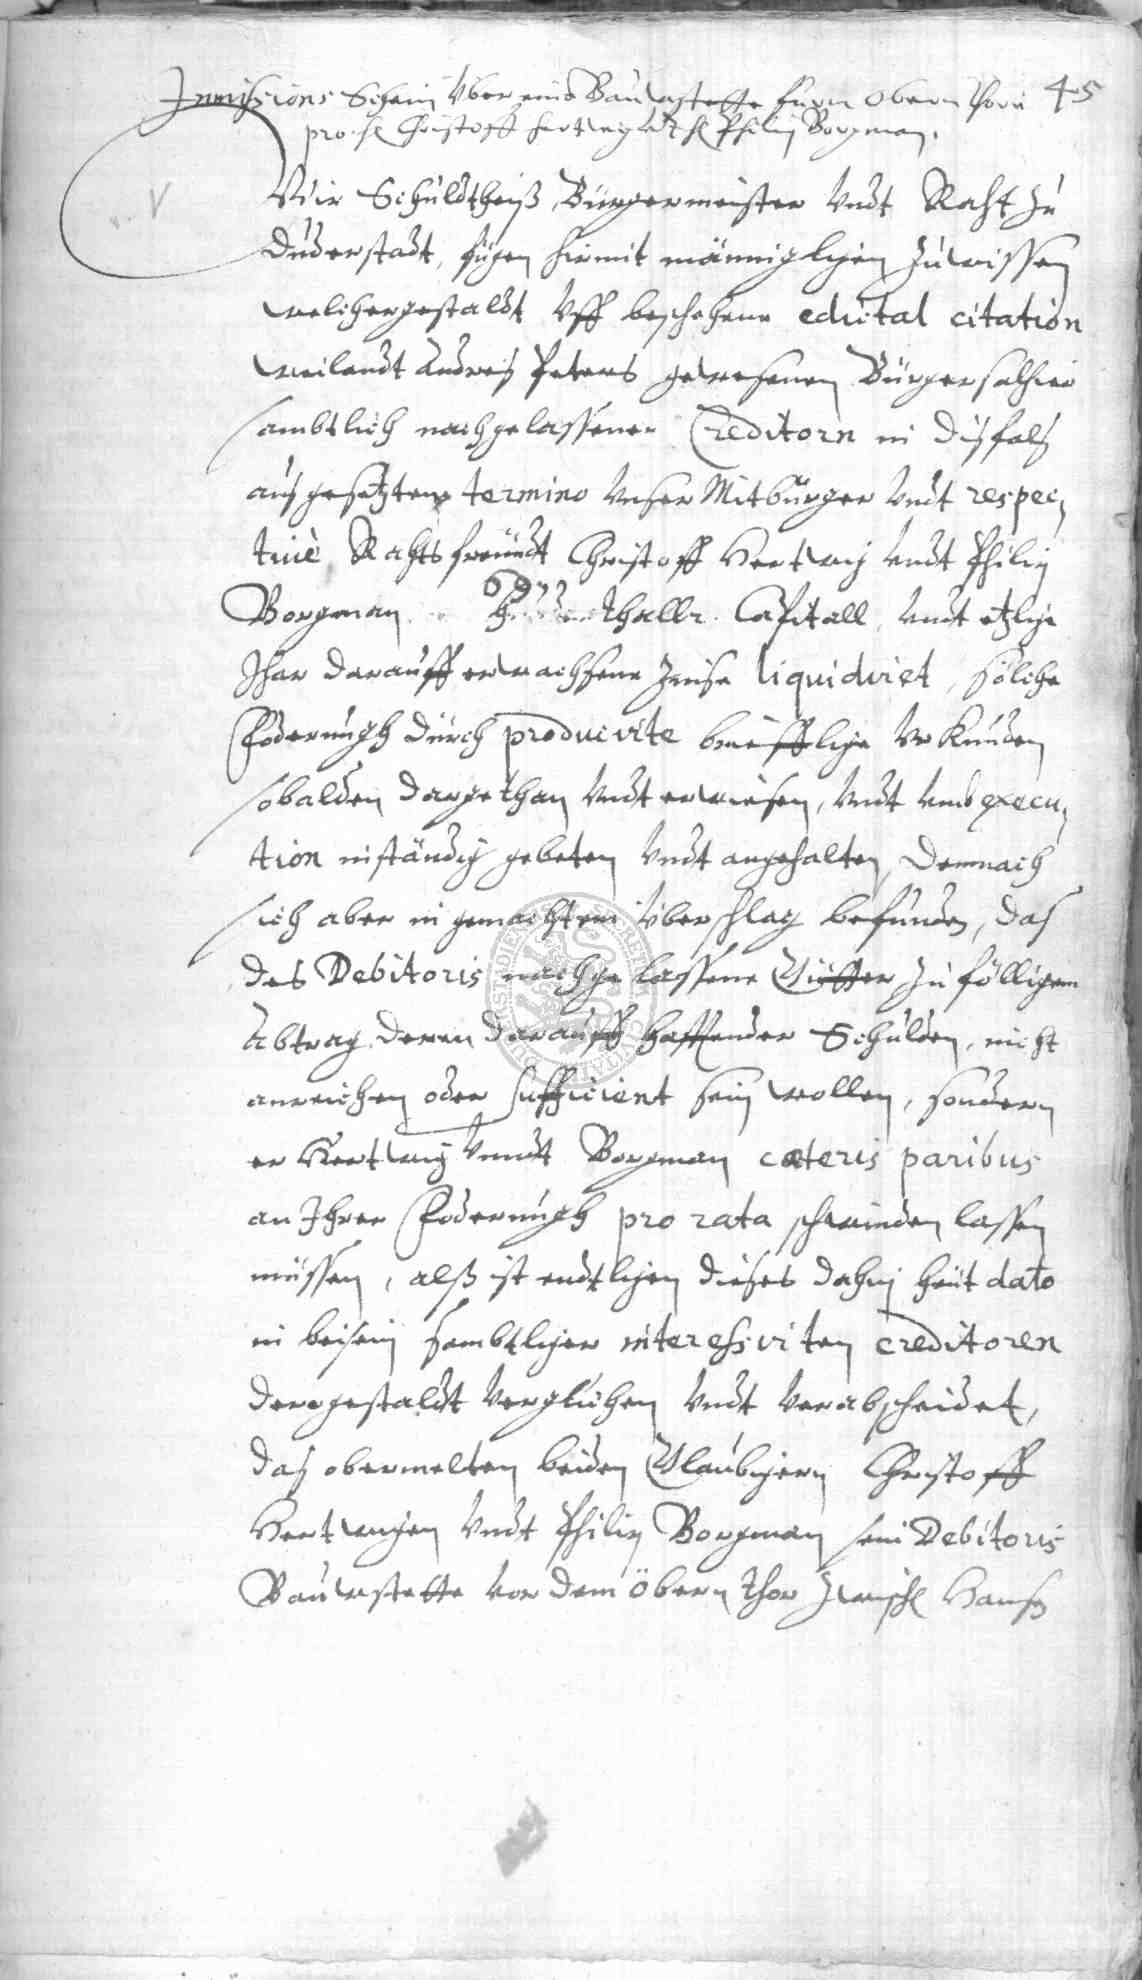 Immissions Schein Vber eine Bauwstette furm Obern Thore 45
pro H. Christoff Hertwig Vndt H. Philip Borgman.
Wir Schuldtheiß, Bürgermeister Vndt Raht zu
Duderstadt, fügen hirmit männiglichen zuwissen
welchergestaldt Vff beschehene edictal citation
weilandt Andreß Peters gewesenen Bürgers alhier
sambtlich nachgelassener Creditorn in disfals
ausgesetztem termino Vnser Mitbürger Vndt respec,
tiuè Rahtsfreündt Christoff Hertwig Vndt Philip
Borgman thallr. Capitall, Vndt etzliche
Jhar darauff erwachsene Zinse liquidirt, solche
Foderungh durch producirte brieffliche Vrkunden
sobalden dargethan Vndt erwiesen, Vndt Vmb execu,
tion inständig gebeten Vndt angehalten, Demnach
sich aber in gemachtem Vberschlag befunden, das
des Debitoris nachgelassene Gütter zu fölligem
Abtrag deren darauff hafftender Schulden, nicht
anreichen oder sufficient sein wollen, sondern
er Hertwig Vnndt Borgman cæteris paribus
an Ihrer Foderungh pro rata schwinden lassen
müssen, alß ist endtlichen dieses dahin heüt dato
in beisein sambtlicher interessirten creditoren
dergestaldt Verglichen Vndt Verabscheidet,
das obermelten beiden Glaubigern Christoff
Hertwigen Vndt Philip Borgman sein Debitoris
Bauwstette vor dem Obern thor zwisch. Hansen